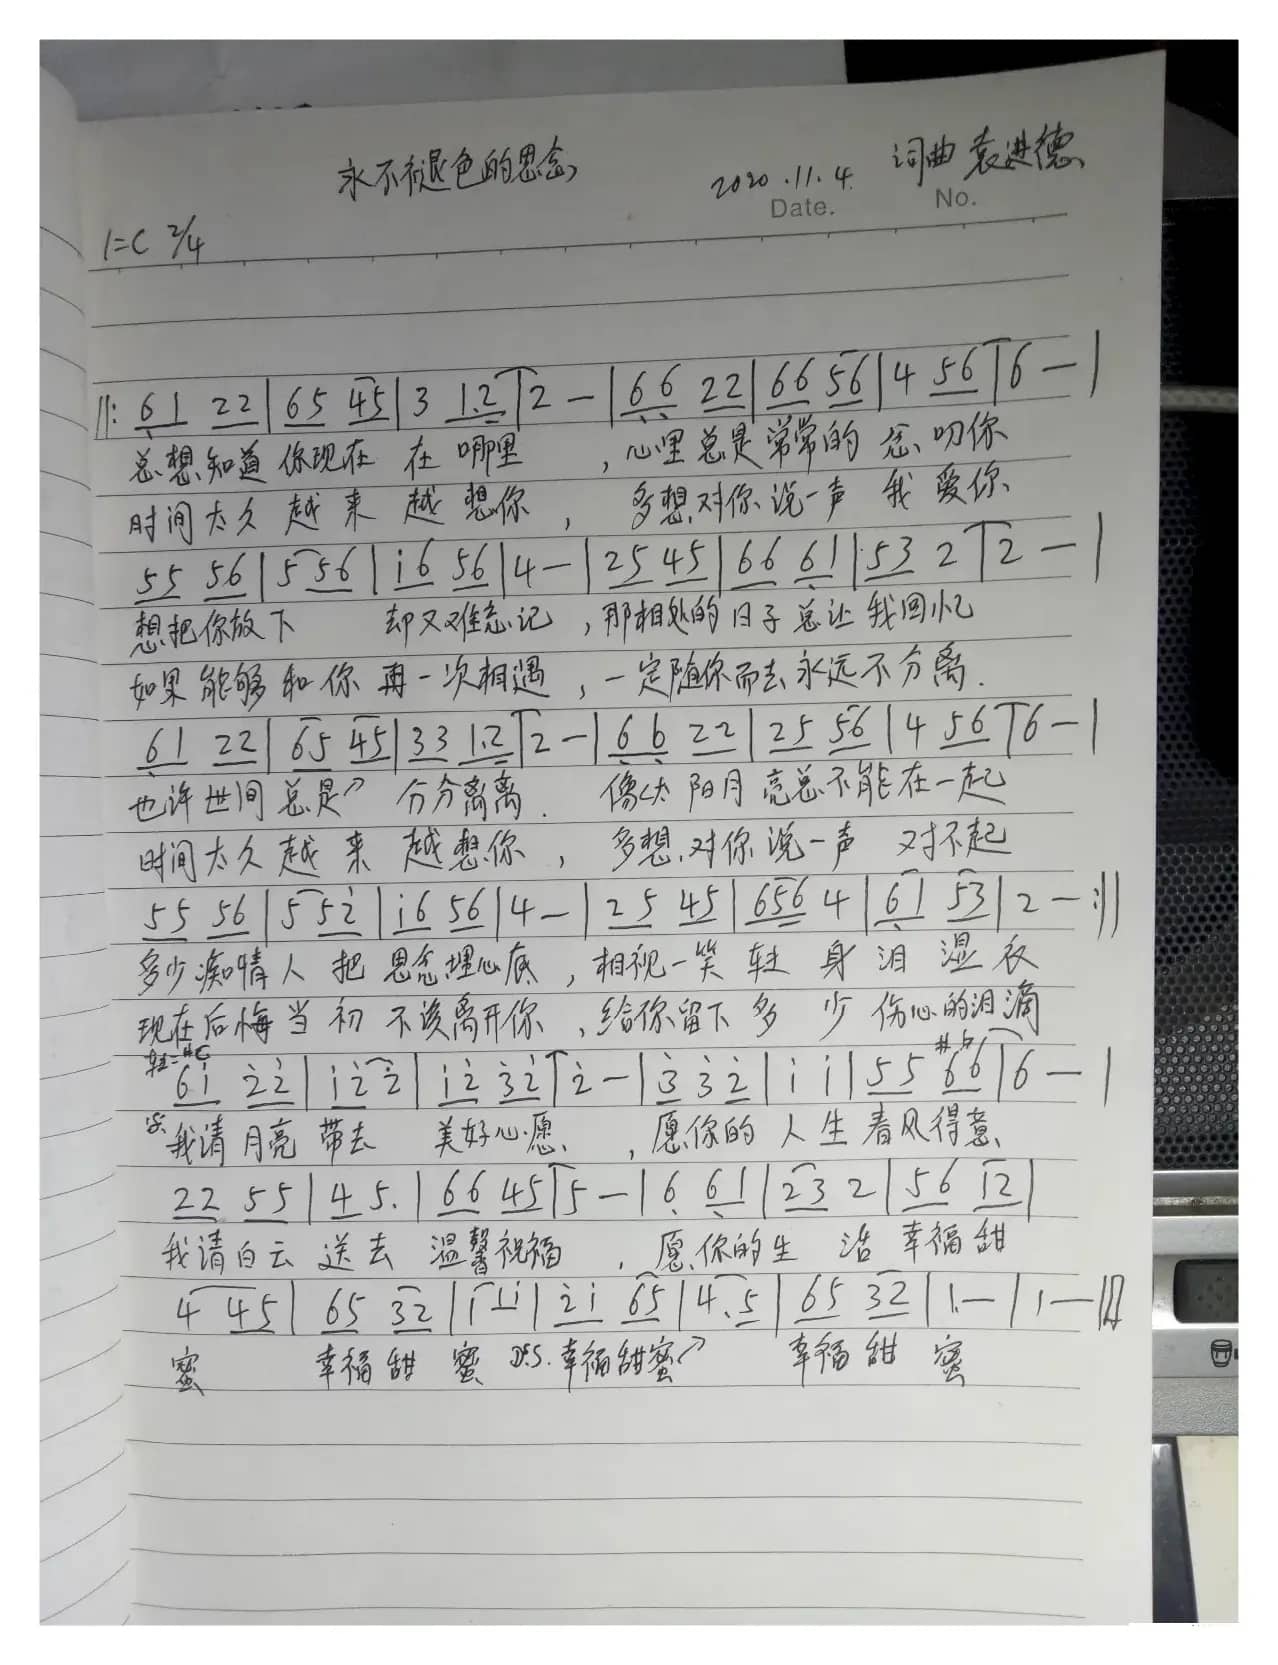 永不褪色的思念
2020.11.4. 词曲 袁进德
Date. No.
1=C 2/4
‖: 6 1 2 2 | 6 5 4 5 | 3 1.2 | 2 — | 6 6 2 2 | 6 6 5 6 | 4 5 6 | 6 — |
总想知道你现在 在 哪里 ，心里总是常常的 念叨你
时间太久 越来 越想你 ， 多想对你说一声 我爱你
5 5 5 6 | 5 5 6 | i 6 5 6 | 4 — | 2 5 4 5 | 6 6 6 1 | 5 3 2 | 2 — |
想把你放下 却又难忘记 ，那相处的日子总让我回忆
如果能够和你再一次相遇 ，一定随你而去永远不分离.
6 1 2 2 | 6 5 4 5 | 3 3 1.2 | 2 — | 6 6 2 2 | 2 5 5 6 | 4 5 6 | 6 — |
也许世间总是 分分离离. 像太阳月亮总不能在一起
时间太久越来 越想你 ， 多想对你说一声 对不起
5 5 5 6 | 5 5 2 | i 6 5 6 | 4 — | 2 5 4 5 | 6 5 6 4 | 6 1 5 3 | 2 — :‖
多少痴情人把思念埋心底 ，相视一笑转身泪湿衣
现在后悔当初不该离开你 ，给你留下多少伤心的泪滴
转=#C
6 i 2 2 | i 2 2 | i 2 3 2 | 2 — | 3 3 2 | i i | 5 5 #6 ♮6 | 6 — |
我请月亮带去 美好心愿 ，愿你的人生春风得意
2 2 5 5 | 4 5. | 6 6 4 5 | 5 — | 6 6 1 | 2 3 2 | 5 6 1 2 |
我请白云送去 温馨祝福 ，愿你的生活幸福甜
4 4 5 | 6 5 3 2 | i 1 i | 2 i 6 5 | 4. 5 | 6 5 3 2 | 1. — | 1 — ‖
蜜 幸福甜蜜 D.S. 幸福甜蜜 幸福甜 蜜